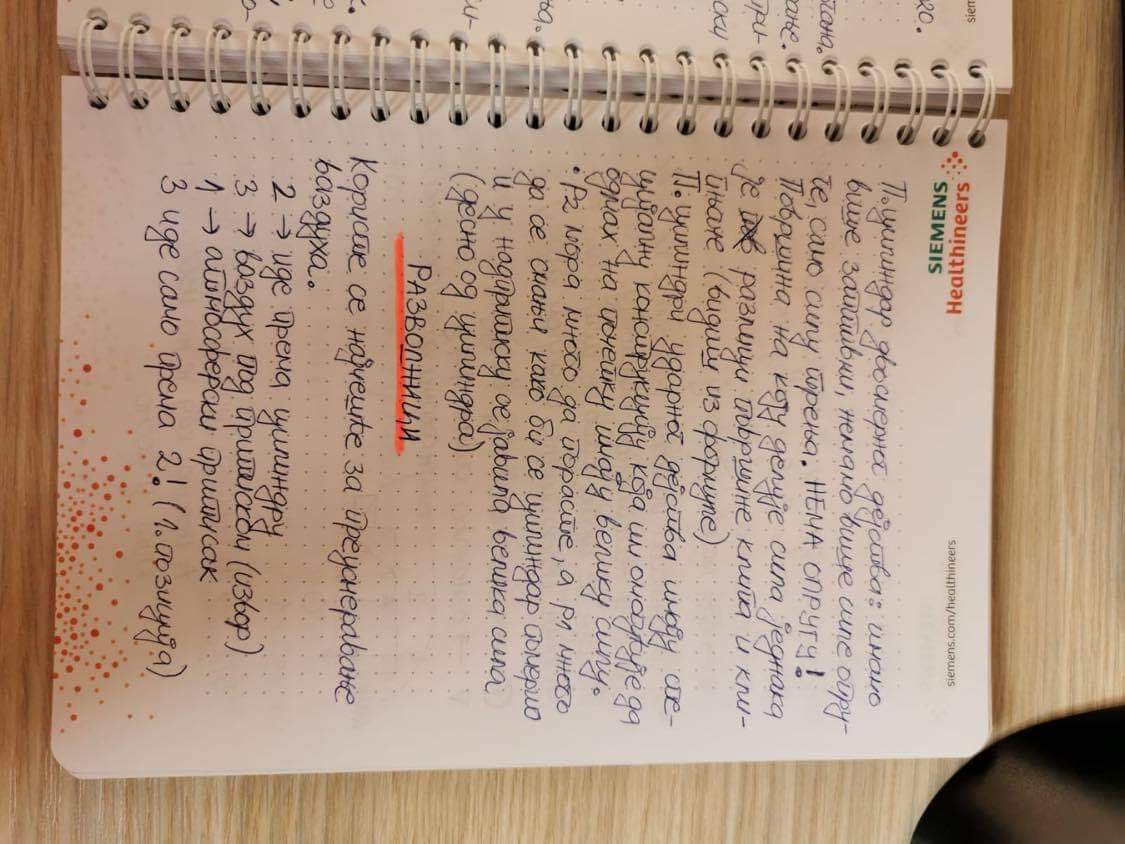 SIEMENS
Healthineers
siemens.com/healthineers
П. цилиндар двосмерног дејства: имамо
више заптивки, немамо више силе опру-
ге, само силу трења. НЕМА ОПРУГУ!
Површина на коју делује сила једнака
је разлици површине клипа и кли-
њаче (видиш из формуле)
П. цилиндри ударног дејства имају спе-
цијалну конструкцију која им омогућује да
одмах на почетку имају велику силу.
• P2 мора много да порасте, а P1 много
да се смањи како би се цилиндар померио
и у надпритиску се јавила велика сила
(десно од цилиндра)
РАЗВОДНИЦИ
Користе се најчешће за преусмеравање
ваздуха.
2 → иде према цилиндру
3 → ваздух под притиском (извор)
1 → атмосферски притисак
3 иде само према 2! (1. позиција)